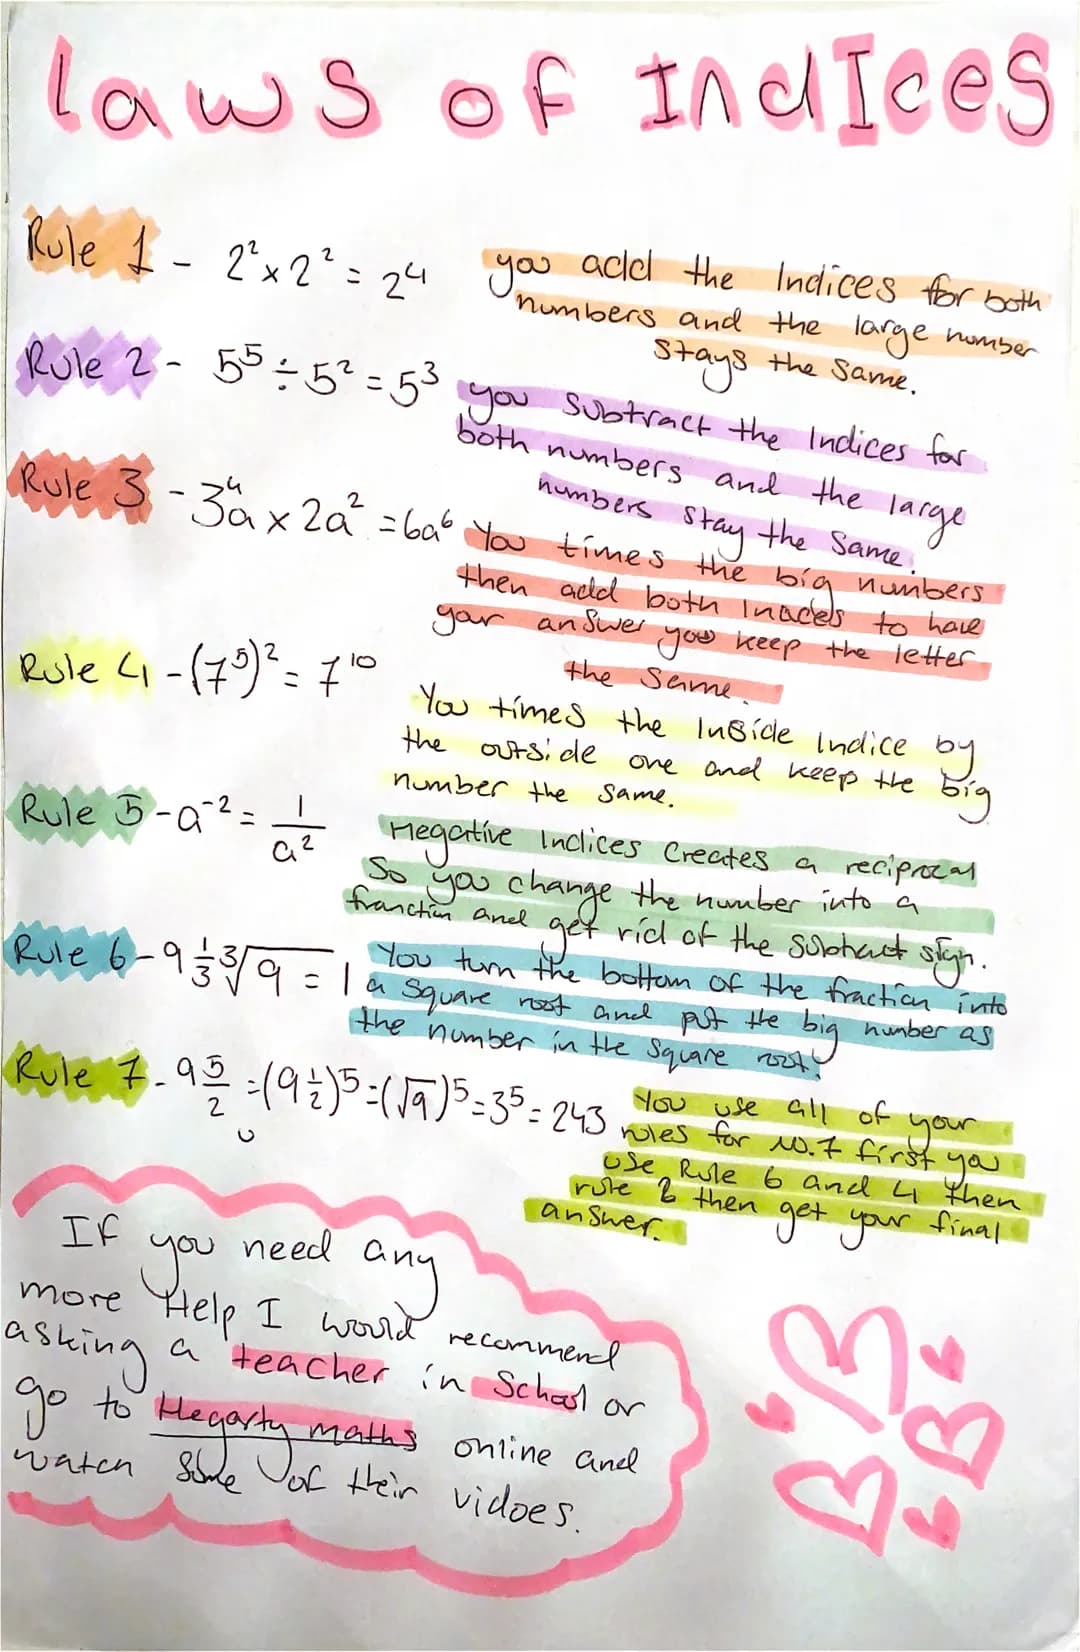 Laws of Indices
Rule 1 - 2² x 2² = 2⁴
you add the Indices for both
numbers and the large number
stays the same.
Rule 2 - 5⁵ ÷ 5² = 5³
you subtract the Indices for
both numbers and the large
numbers stay the same.
Rule 3 - 3a⁴ x 2a² = 6a⁶
You times the big numbers
then add both Inaces to have
your answer you keep the letter
the same.
Rule 4 - (7⁵)² = 7¹⁰
You times the Inside Indice by
the outside one and keep the big
number the same.
Rule 5 - a⁻² = 1/a²
Negative Indices Creates a reciprocal
So you change the number into a
franction and get rid of the Subtract sign.
Rule 6 - 9 1/3 ³√9 = 1
You turn the bottom of the fraction into
a Square root and put the big number as
the number in the Square root.
Rule 7 - 9 5/2 = (9 1/2)⁵ = (√9)⁵ = 3⁵ = 243
You use all of your
rules for no.7 first you
use Rule 6 and 4 then
rule 2 then get your final
answer.
If you need any
more Help I would recommend
asking a teacher in School or
go to Hegarty maths online and
watch Some of their vidoes.